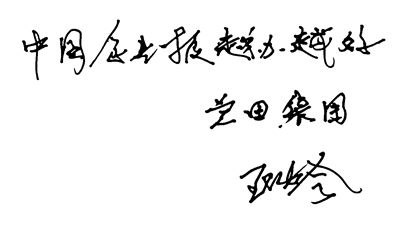 中国企业报越办越好
田集团